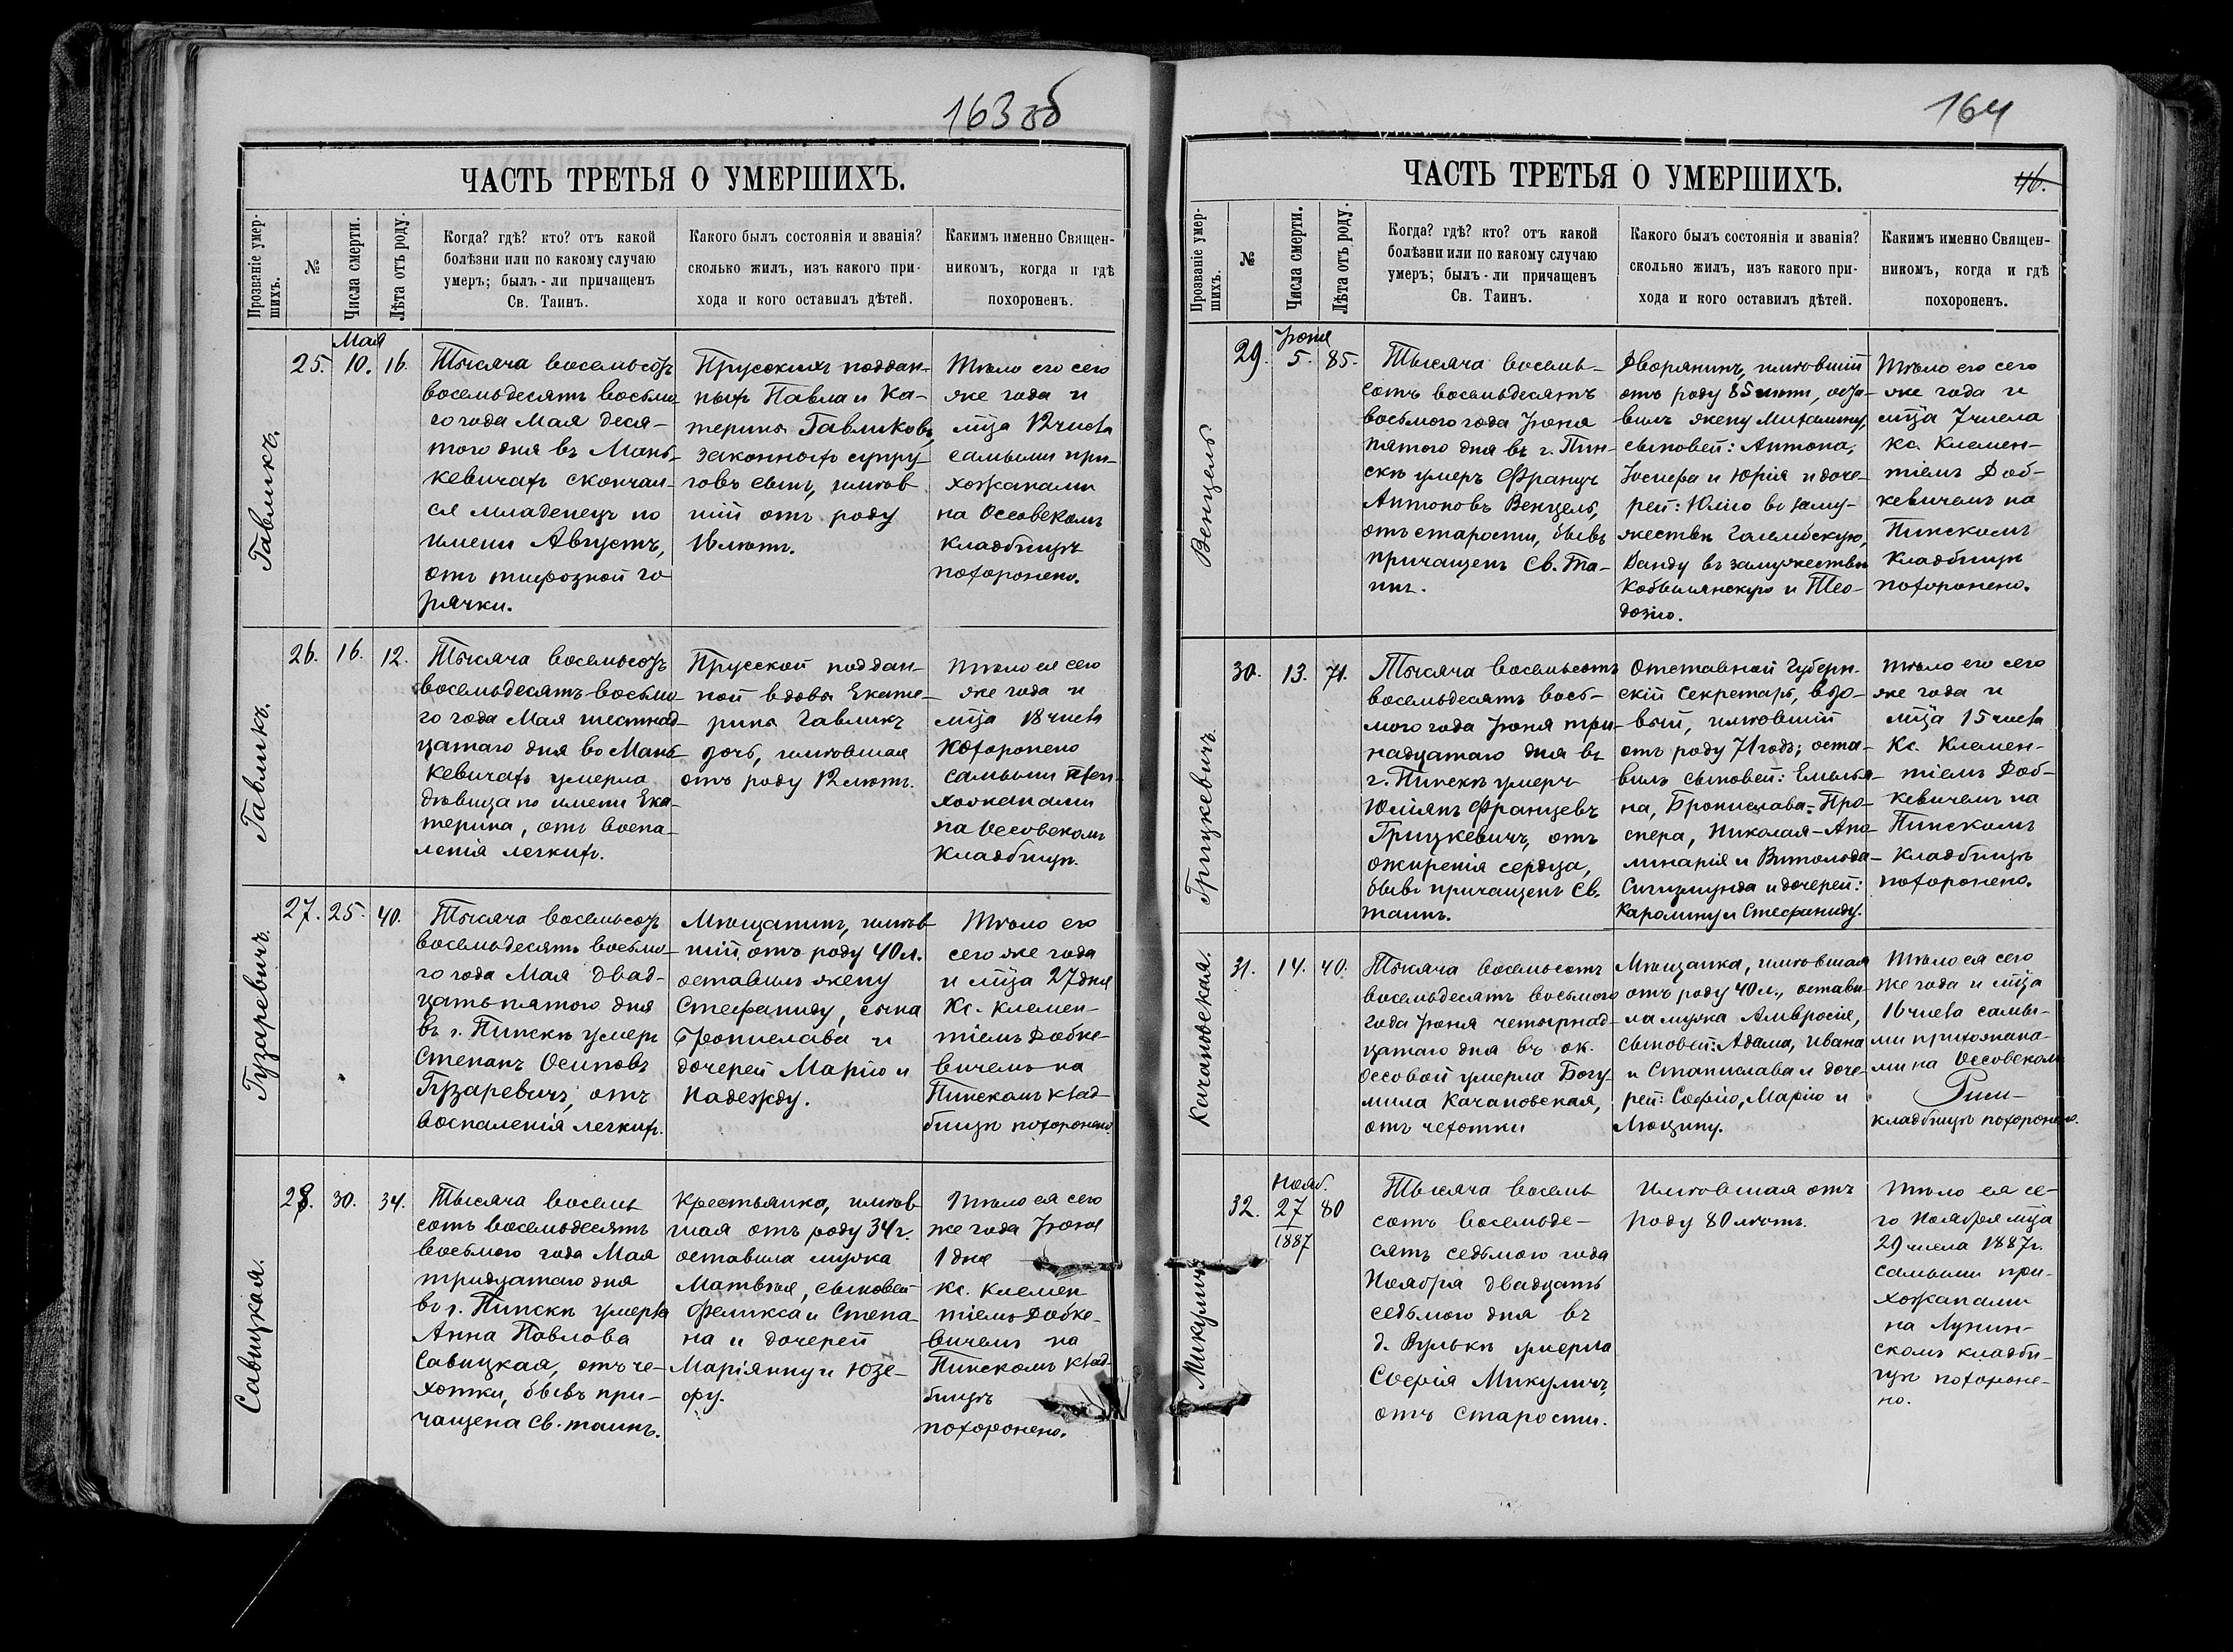 163 об
ЧАСТЬ ТРЕТЬЯ О УМЕРШИХЪ.
Прозваніе умер-
шихъ.
№
Числа смерти.
Лѣта отъ роду.
Когда? гдѣ? кто? отъ какой
болѣзни или по какому случаю
умеръ; былъ-ли причащенъ
Св. Таинъ.
Какого былъ состоянія и званія?
сколько жилъ, изъ какого при-
хода и кого оставилъ дѣтей.
Какимъ именно Священ-
никомъ, когда и гдѣ
похороненъ.
Гавликъ.
25.
Мая
10.
16.
Тысяча восемьсотъ
восемьдесятъ восьма-
го года Мая деся-
того дня въ Мань-
кевичахъ скончал-
ся младенецъ по
имени Августъ,
отъ тифозной го
рячки.
Прусскихъ поддан-
ныхъ Павла и Ка-
терины Гавликовъ
законныхъ супру-
говъ сынъ, имѣв
шій отъ роду
16 лѣтъ.
Тѣло его сего
же года и
мѣца 12 числа
самыми при-
хожанами
на Осовскомъ
кладбищѣ
похоронено.
Гавликъ.
26.
16.
12.
Тысяча восемьсотъ
восемьдесятъ восьма
го года Мая шестнад
цатаго дня во Мань-
кевичахъ умерла
дѣвица по имени Ека-
терина, отъ воспа-
ленія легкихъ.
Прусской поддан-
ной вдовы Екате-
рины Гавликъ
дочь, имѣвшая
отъ роду 12 лѣтъ.
Тѣло ея сего
же года и
мѣца 18 числа
похоронено
самыми при-
хожанами
на Оссовскомъ
кладбищѣ.
Гузаревичъ.
27.
25.
40.
Тысяча восемьсотъ
восемьдесятъ восьма-
го года Мая двад-
цать пятого дня
въ г. Пинскѣ умеръ
Степанъ Осиповъ
Гузаревичъ, отъ
воспаленія легкихъ.
Мѣщанинъ, имѣв
шій отъ роду 40 л.
оставилъ жену
Стефаниду, сына
Бронислава и
дочерей Марію и
Надежду.
Тѣло его
сего же года
и мѣца 27 дня
Кс. Клемен-
тіемъ Добке-
вичемъ на
Пинскомъ клад-
бищѣ похоронено
Савицкая.
28.
30.
34.
Тысяча восемь
сотъ восемьдесятъ
восьмого года Мая
тридцатаго дня
въ г. Пинскѣ умерла
Анна Павлова
Савицкая, отъ че-
хотки, бывъ при-
чащена Св. таинъ.
Крестьянка, имѣв
шая отъ роду 34 г.
оставила мужа
Матвѣя, сыновей
Феликса и Степа-
на и дочерей
Маріянну и Юзе-
фу.
Тѣло ея сего
же года Іюня
1 дня
Кс. Клемен
тіемъ Добке-
вичемъ на
Пинскомъ клад-
бищѣ
похоронено.
164
ЧАСТЬ ТРЕТЬЯ О УМЕРШИХЪ.
46.
Прозваніе умер-
шихъ.
№
Числа смерти.
Лѣта отъ роду.
Когда? гдѣ? кто? отъ какой
болѣзни или по какому случаю
умеръ; былъ-ли причащенъ
Св. Таинъ.
Какого былъ состоянія и званія?
сколько жилъ, изъ какого при-
хода и кого оставилъ дѣтей.
Какимъ именно Священ-
никомъ, когда и гдѣ
похороненъ.
Венцель
29.
Іюня
5.
85.
Тысяча восемь-
сотъ восемьдесятъ
восьмого года Іюня
пятого дня въ г. Пин-
скѣ умеръ Францъ
Антоновъ Венцель,
отъ старости, бывъ
причащенъ Св. Та-
инъ.
Дворянинъ, имѣвшій
отъ роду 85 лѣтъ, оста-
вилъ жену Михалину,
сыновей: Антона,
Іосифа и Юрія и доче-
рей: Юлію въ заму-
жествѣ Голембскую,
Ванду въ замужествѣ
Кобылянскую и Тео-
дозію.
Тѣло его сего
же года и
мѣца 7 числа
Кс. Клемен-
тіемъ Доб-
кевичемъ на
Пинскомъ
Кладбищѣ
похоронено.
Грицкевичъ.
30.
13.
71.
Тысяча восемьсотъ
восемьдесятъ вось-
мого года Іюня три-
надцатаго дня въ
г. Пинскѣ умеръ
Юліянъ Францевъ
Грицкевичъ, отъ
ожиренія сердца,
бывъ причащенъ Св.
таинъ.
Отставной Губерн-
скій Секретарь, вдо-
вый, имѣвшій
отъ роду 71 годъ; оста-
вилъ сыновей: Емелья-
на, Бронислава-Про-
спера, Николая-Апо-
линарія и Витольда-
Сигизмунда и дочерей:
Каролину и Стефаниду.
Тѣло его сего
же года и
мѣца 15 числа
Кс. Клемен-
тіемъ Доб-
кевичемъ на
Пинскомъ
Кладбищѣ
похоронено.
Качановская.
31.
14.
40.
Тысяча восемьсотъ
восемьдесятъ восьмого
года Іюня четырнад-
цатаго дня въ ок.
Оссовой умерла Богу-
мила Качановская,
отъ чехотки
Мѣщанка, имѣвшая
отъ роду 40 л., остави-
ла мужа Амвросія,
сыновей: Адама, Ивана
и Станислава и доче-
рей: Софію, Марію и
Люцину.
Тѣло ея сего
же года и мѣца
16 числа самы-
ми прихожана-
ми на Оссовскомъ
кладбищѣ похоронено.
Микуличъ
32.
Нояб.
27
1887
80
Тысяча восемь
сотъ восемьде-
сятъ седьмого года
Ноября двадцать
седьмого дня въ
д. Вулькѣ умерла
Софія Микуличъ,
отъ старости.
Имѣвшая отъ
роду 80 лѣтъ.
Тѣло ея се-
го Ноября мѣца
29 числа 1887 г.
самыми при-
хожанами
на Лунин-
скомъ кладби-
щѣ похороне-
но.